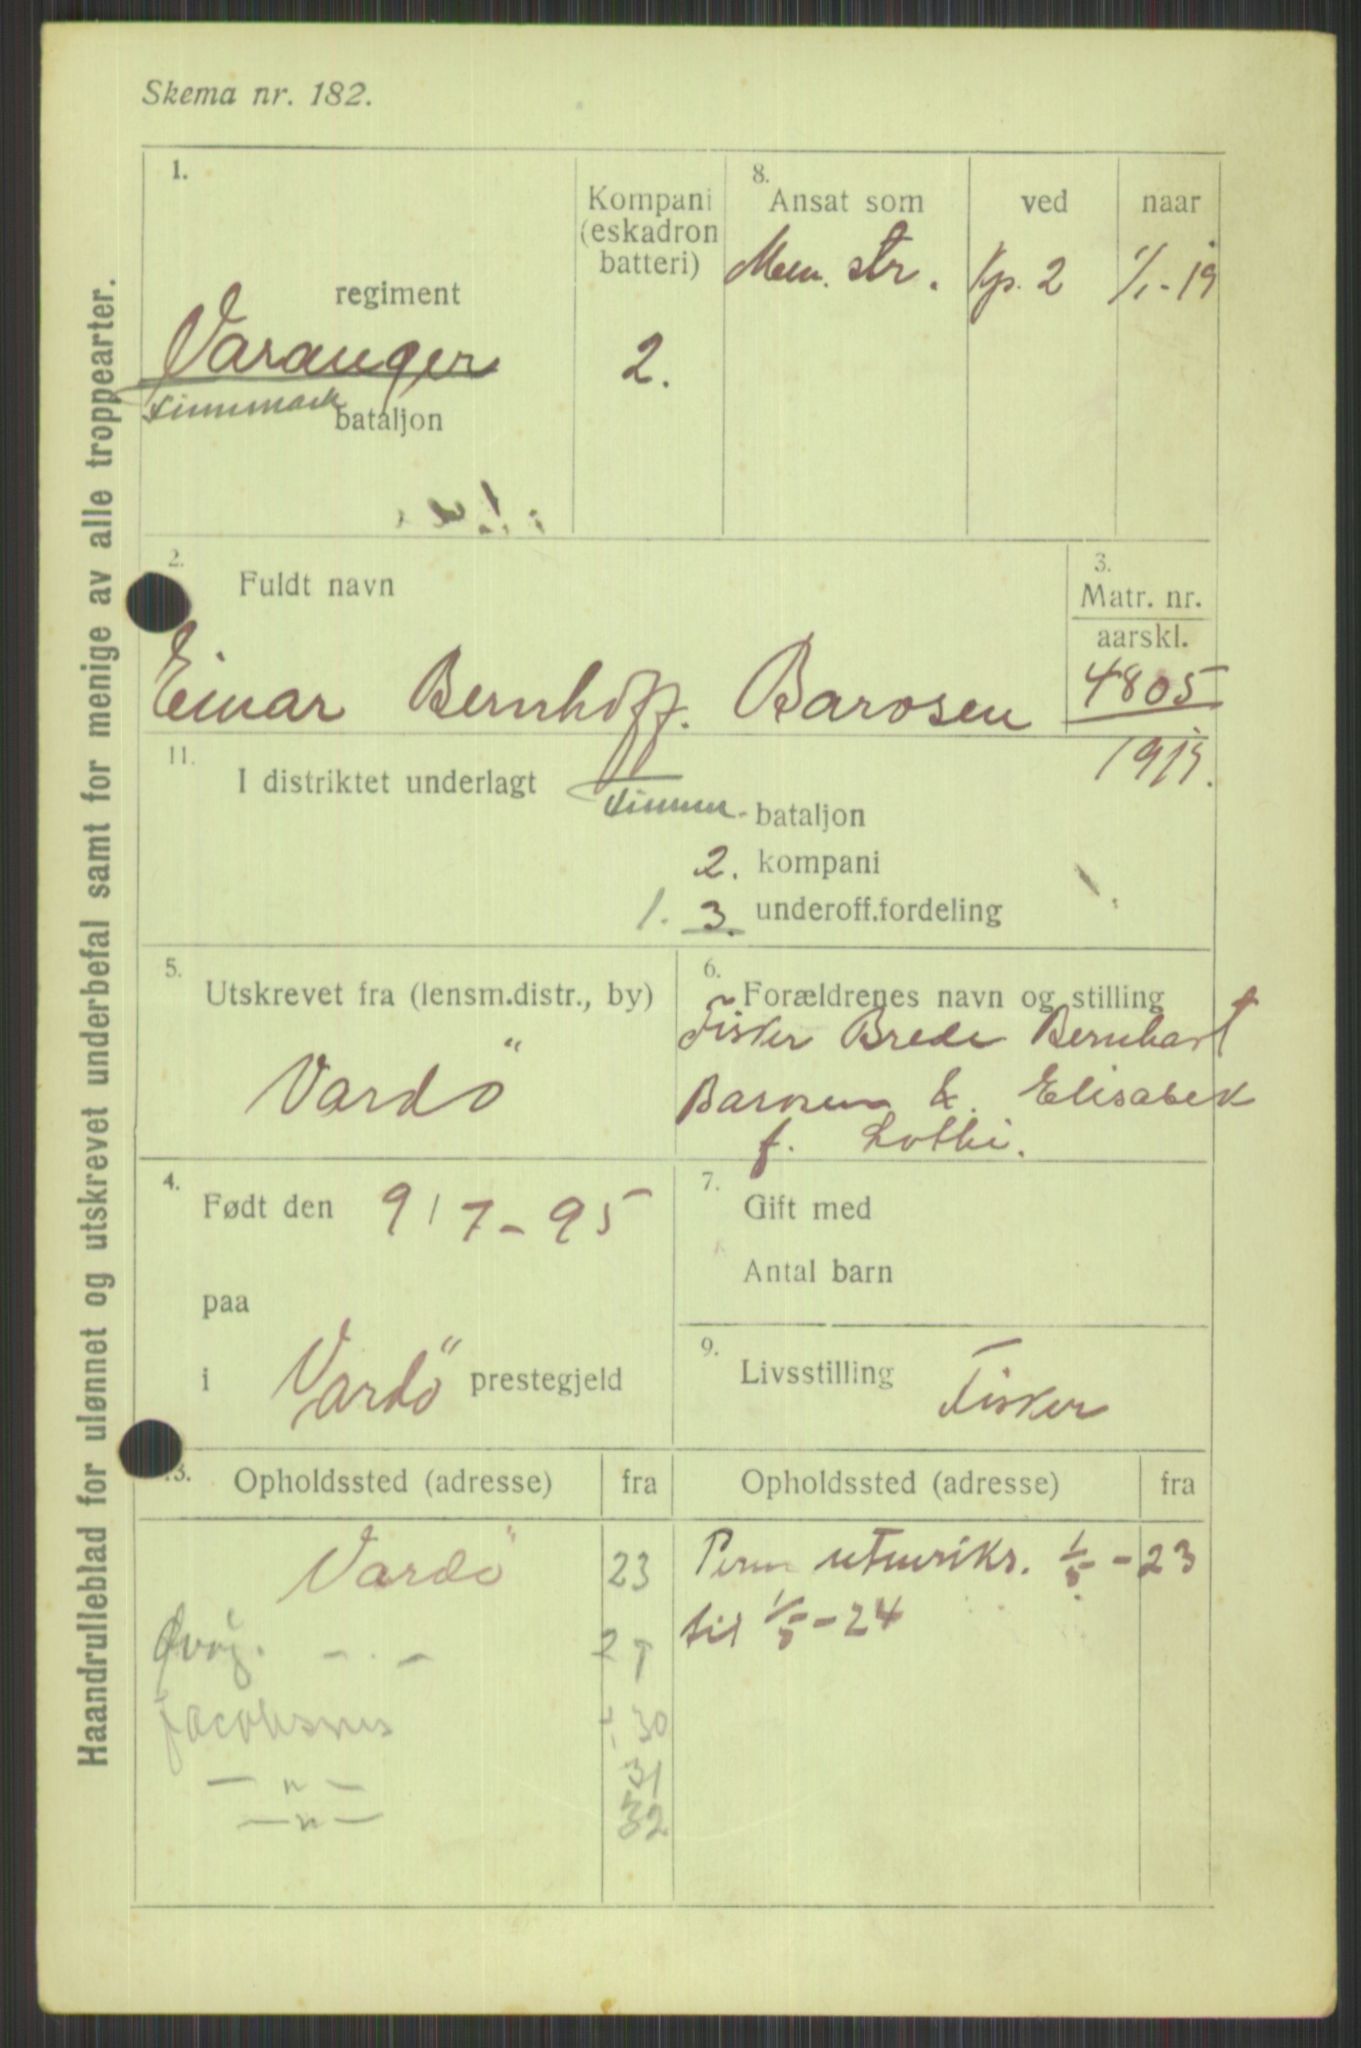 Skema nr. 182.
Haandrulleblad for ulønnet og utskrevet underbefal samt for menige av alle troppearter.
1.
regiment
Varanger
Finnmark
bataljon
Kompani
(eskadron
batteri)
2.
8.
Ansat som
ved
naar
Men. str. Kp. 2 1/1-19
2.
Fuldt navn
Einar Bernhoff. Barosen
3.
Matr. nr.
aarskl.
4805
1919.
11.
I distriktet underlagt
Finnm. bataljon
2. kompani
1. 3. underoff.fordeling
5.
Utskrevet fra (lensm.distr., by)
Vardö
6.
Forældrenes navn og stilling
Fisker Brede Bernhart
Barosen &. Elisabek
f. Lothi.
4.
Født den 9/7-95
paa
i Vardö prestegjeld
7.
Gift med
Antal barn
9.
Livsstilling
Fisker
13.
Opholdssted (adresse) fra
Opholdssted (adresse) fra
Vardö 23
- . -
Jacobsnes 30
— " — 31
— " — 32
Perm utenriks. 1/5-23
til 1/5-24